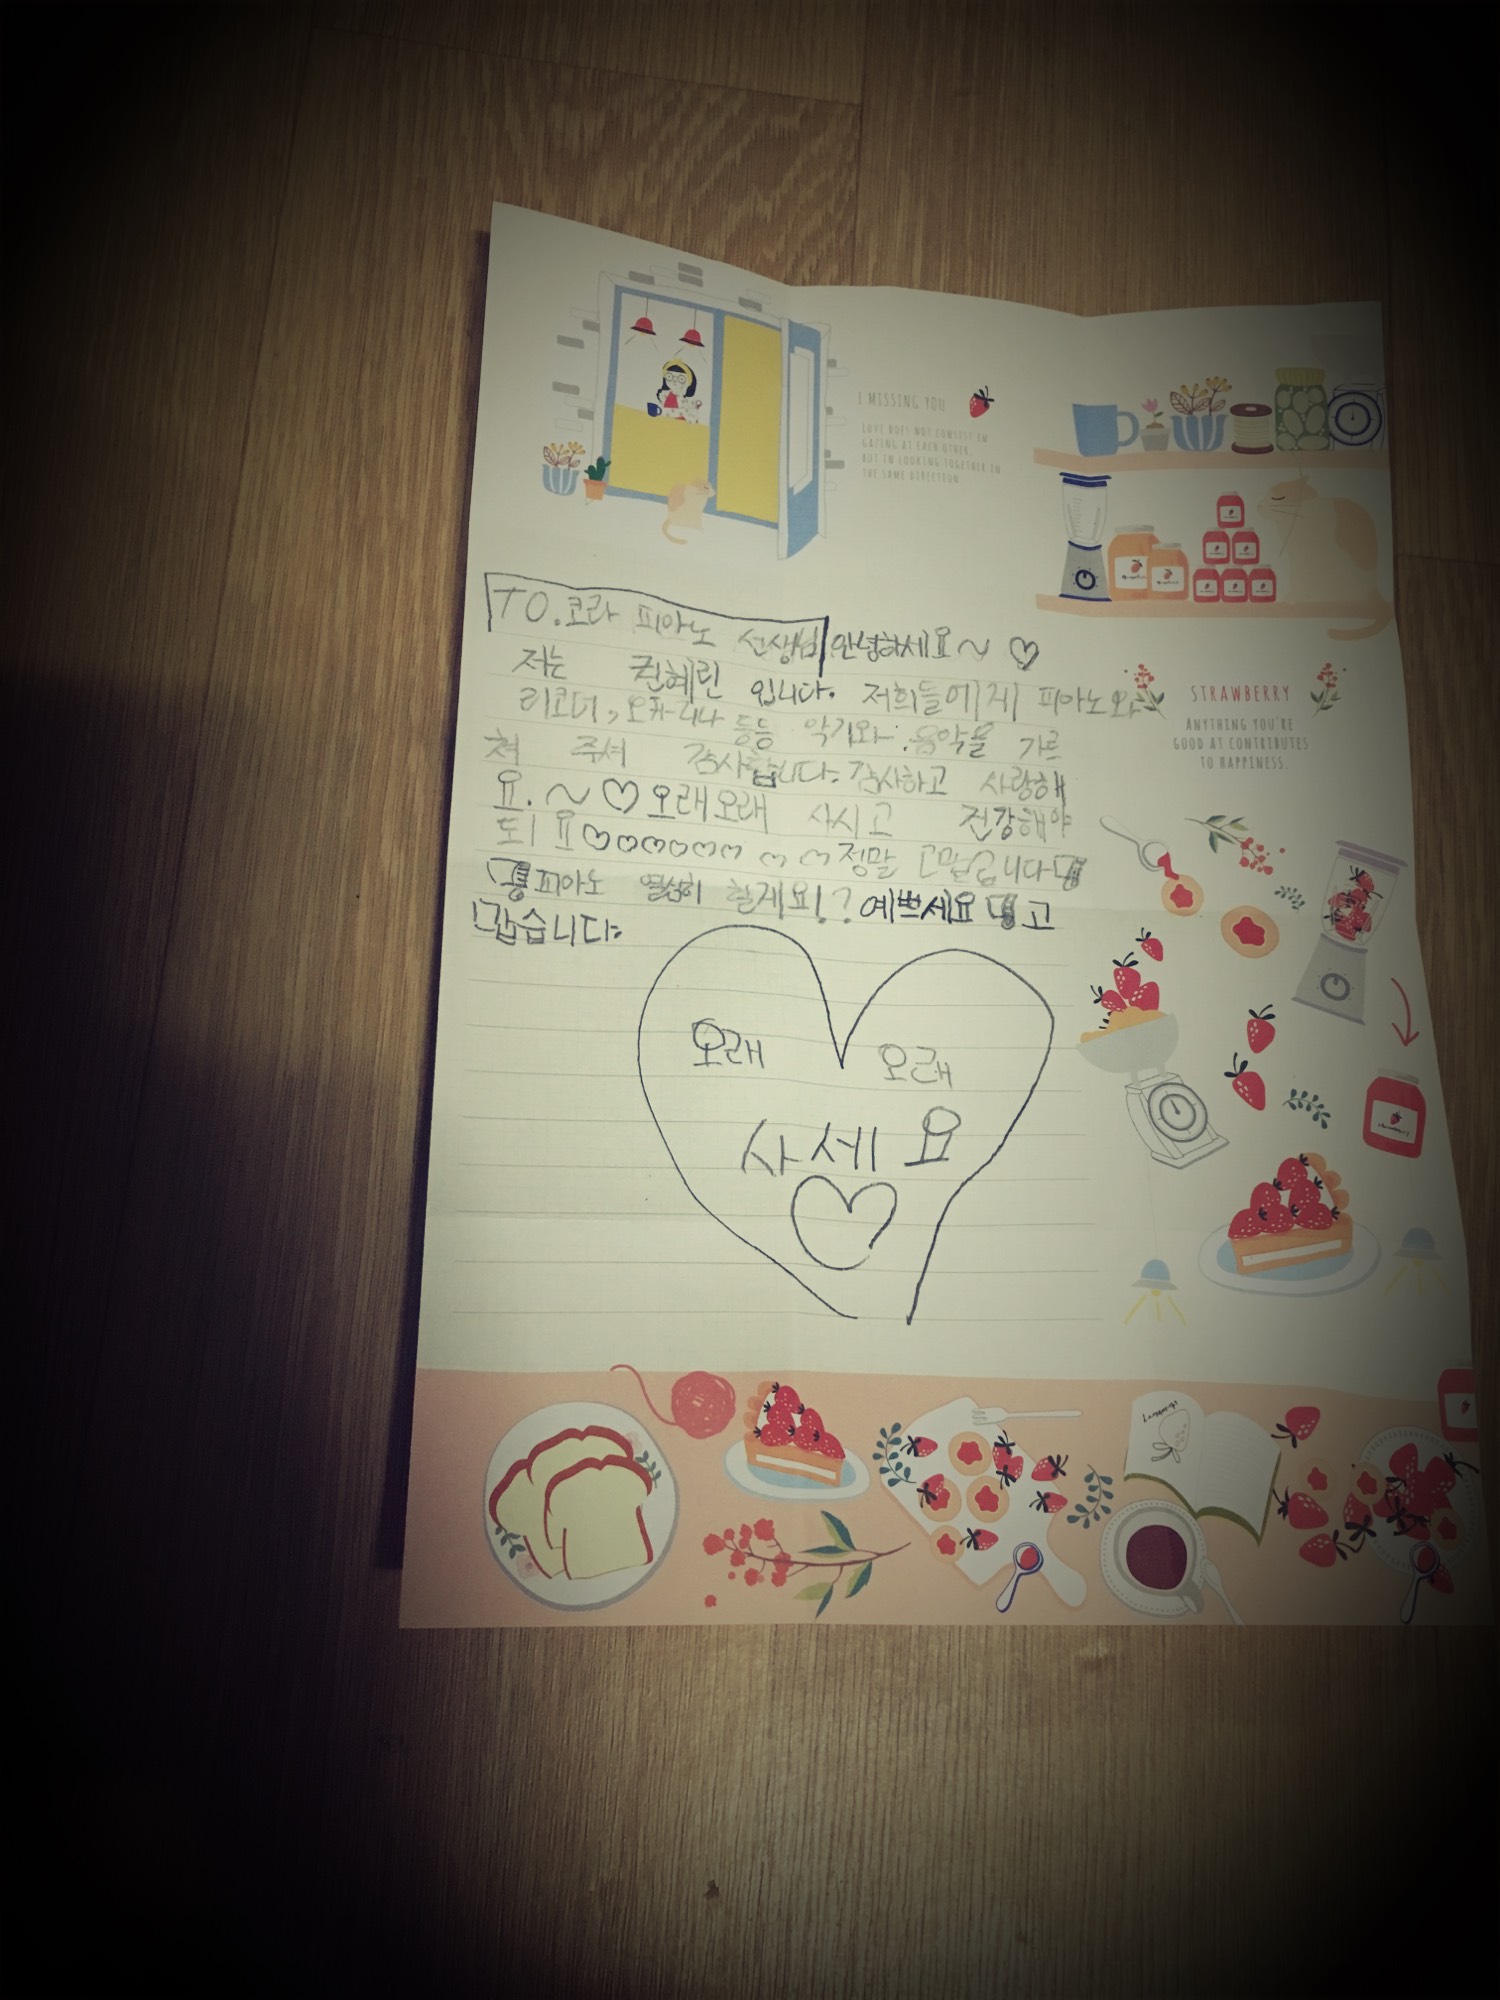 I MISSING YOU
LOVE DOES NOT CONSIST IN
GAZING AT EACH OTHER,
BUT IN LOOKING TOGETHER IN
THE SAME DIRECTION
STRAWBERRY
ANYTHING YOU'RE
GOOD AT CONTRIBUTES
TO HAPPINESS.
TO.코라 피아노 선생님 안녕하세요~ ♡
저는 권혜린 입니다. 저희들에게 피아노와
리코더, 오카리나 등등 악기와 음악을 가르
쳐 주셔 감사합니다. 감사하고 사랑해
요.~♡오래오래 사시고 건강해야
되요♡♡♡♡♡♡♡ ♡♡정말
피아노 열심히 할게요!? 예쁘세요 고
맙습니다.
오래 오래
사세요
♡